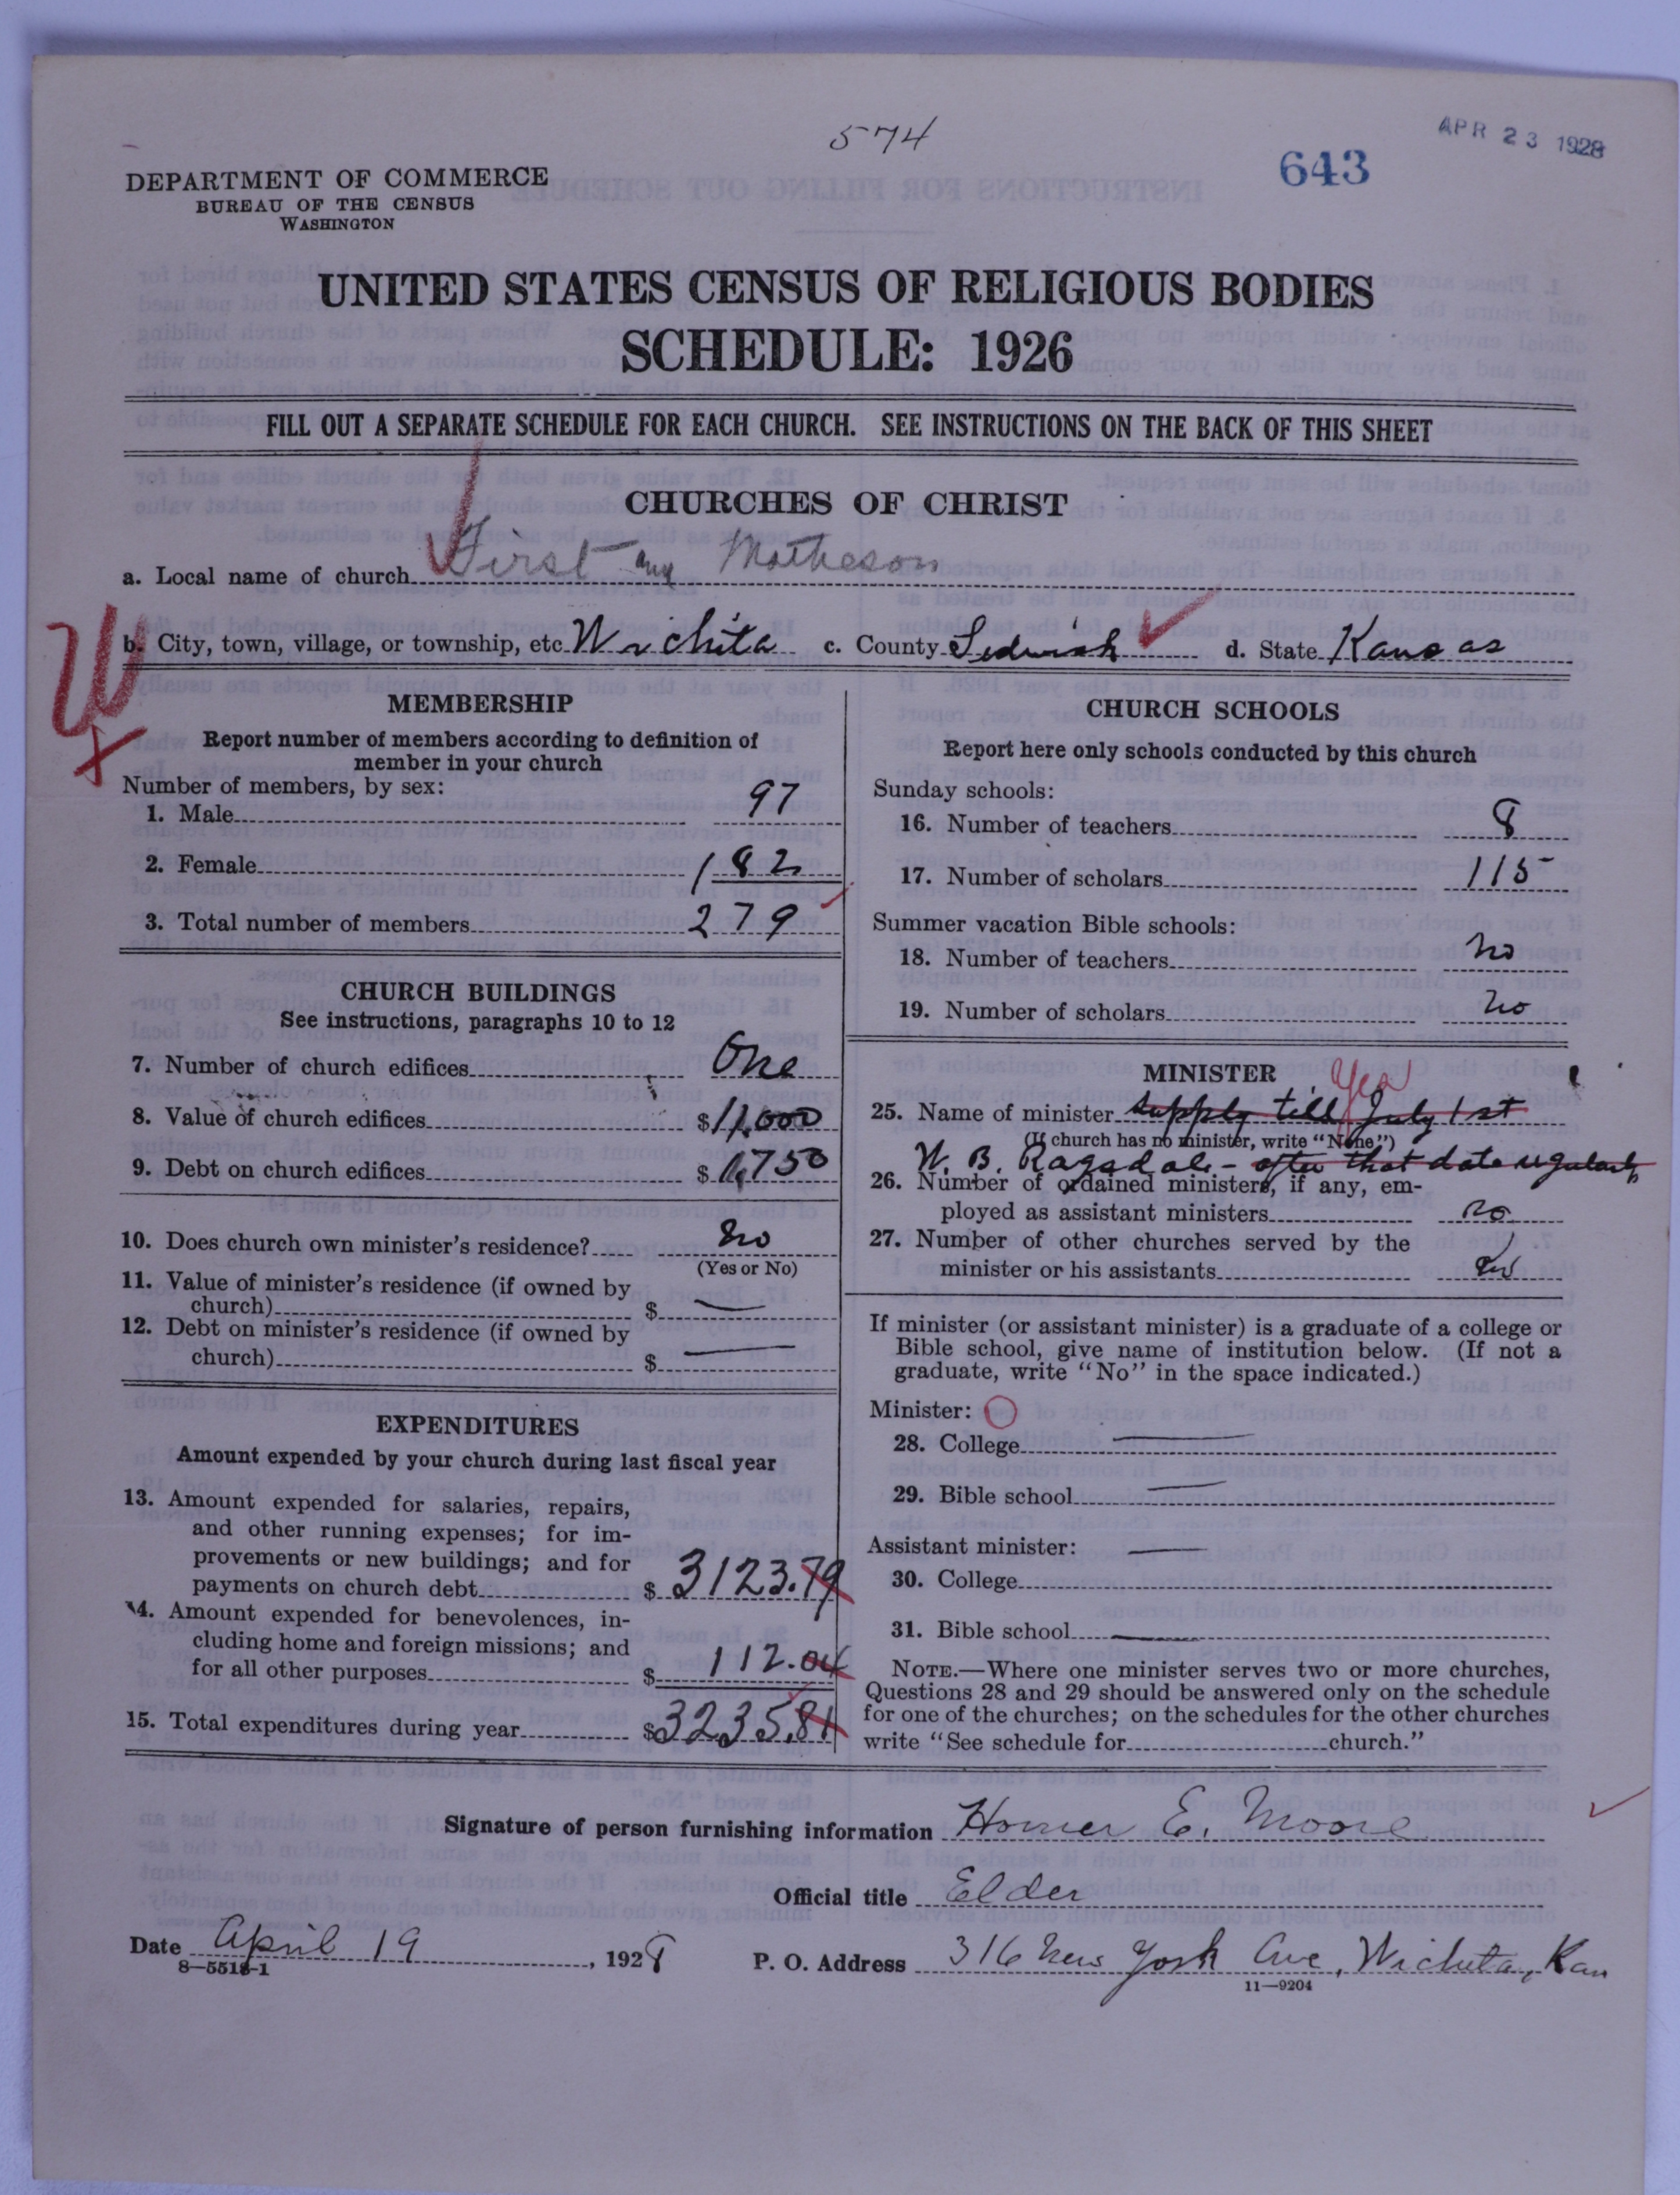 574
APR 23 1928
643
DEPARTMENT OF COMMERCE
BUREAU OF THE CENSUS
WASHINGTON
UNITED STATES CENSUS OF RELIGIOUS BODIES
SCHEDULE: 1926
FILL OUT A SEPARATE SCHEDULE FOR EACH CHURCH. SEE INSTRUCTIONS ON THE BACK OF THIS SHEET
CHURCHES OF CHRIST
a. Local name of church First and Matheson
b. City, town, village, or township, etc. Wichita c. County Sedwick d. State Kansas
MEMBERSHIP
Report number of members according to definition of
member in your church
Number of members, by sex:
1. Male 97
2. Female 182
3. Total number of members 279
CHURCH BUILDINGS
See instructions, paragraphs 10 to 12
7. Number of church edifices One
8. Value of church edifices $11,000
9. Debt on church edifices $1,750
10. Does church own minister's residence? no
(Yes or No)
11. Value of minister's residence (if owned by
church) $ —
12. Debt on minister's residence (if owned by
church) $ —
EXPENDITURES
Amount expended by your church during last fiscal year
13. Amount expended for salaries, repairs,
and other running expenses; for im-
provements or new buildings; and for
payments on church debt $ 3123.79
14. Amount expended for benevolences, in-
cluding home and foreign missions; and
for all other purposes $ 112.04
15. Total expenditures during year $3235.81
CHURCH SCHOOLS
Report here only schools conducted by this church
Sunday schools:
16. Number of teachers 8
17. Number of scholars 115
Summer vacation Bible schools:
18. Number of teachers no
19. Number of scholars no
MINISTER Yes
25. Name of minister supply till July 1st
(If church has no minister, write "None")
W. B. Ragsdale - after that date regularly
26. Number of ordained ministers, if any, em-
ployed as assistant ministers no
27. Number of other churches served by the
minister or his assistants no
If minister (or assistant minister) is a graduate of a college or
Bible school, give name of institution below. (If not a
graduate, write "No" in the space indicated.)
Minister:
28. College —
29. Bible school —
Assistant minister: —
30. College
31. Bible school —
NOTE.—Where one minister serves two or more churches,
Questions 28 and 29 should be answered only on the schedule
for one of the churches; on the schedules for the other churches
write "See schedule for church."
Signature of person furnishing information Homer E. Moore
Official title Elder
Date April 19, 1928 P. O. Address 316 New York Ave, Wichita, Kan
8—5518-1
11—9204